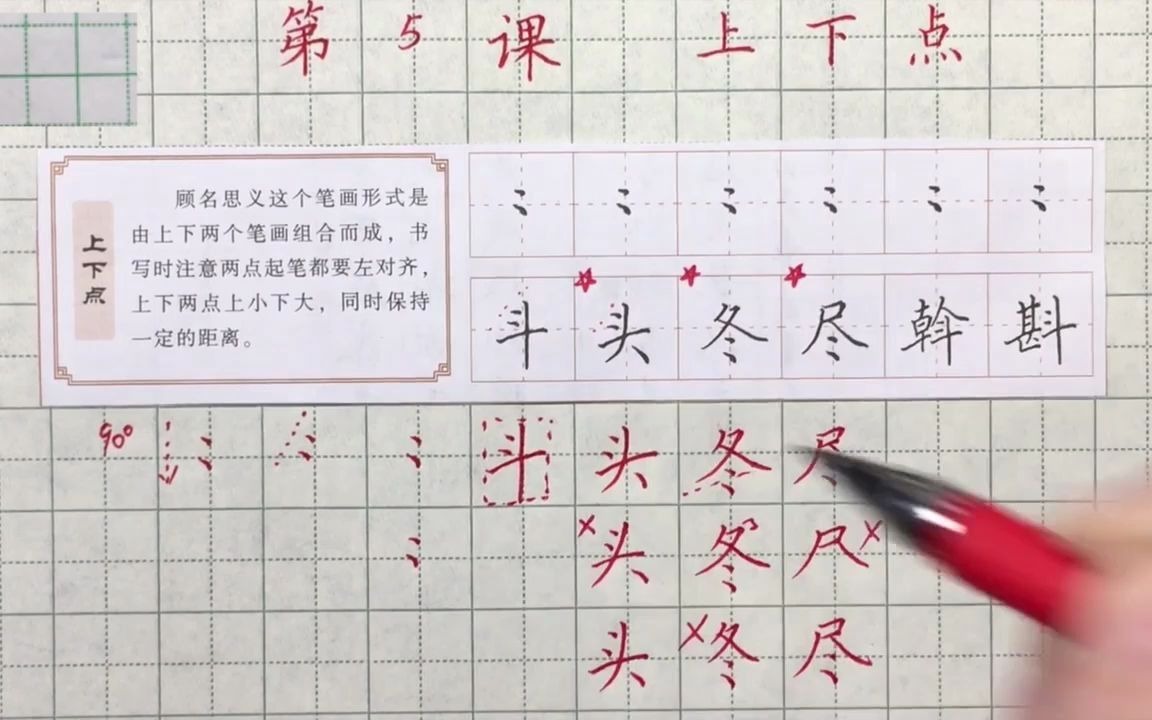 第5课 上下点
上下点
顾名思义这个笔画形式是
由上下两个笔画组合而成，书
写时注意两点起笔都要左对齐，
上下两点上小下大，同时保持
一定的距离。
斗 头 冬 尽 斡 斟
90° 斗 头 冬 尽
×头 冬 尺×
头 ×冬 尽